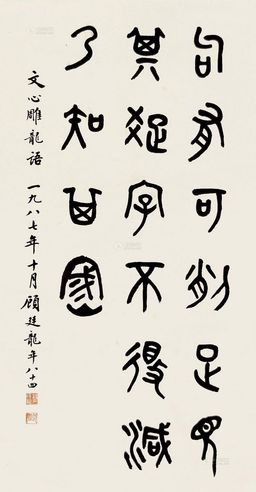 句有可削足見
其疏字不得減
乃知其密
文心雕龍語 一九八七年十月 顧廷龍年八十四